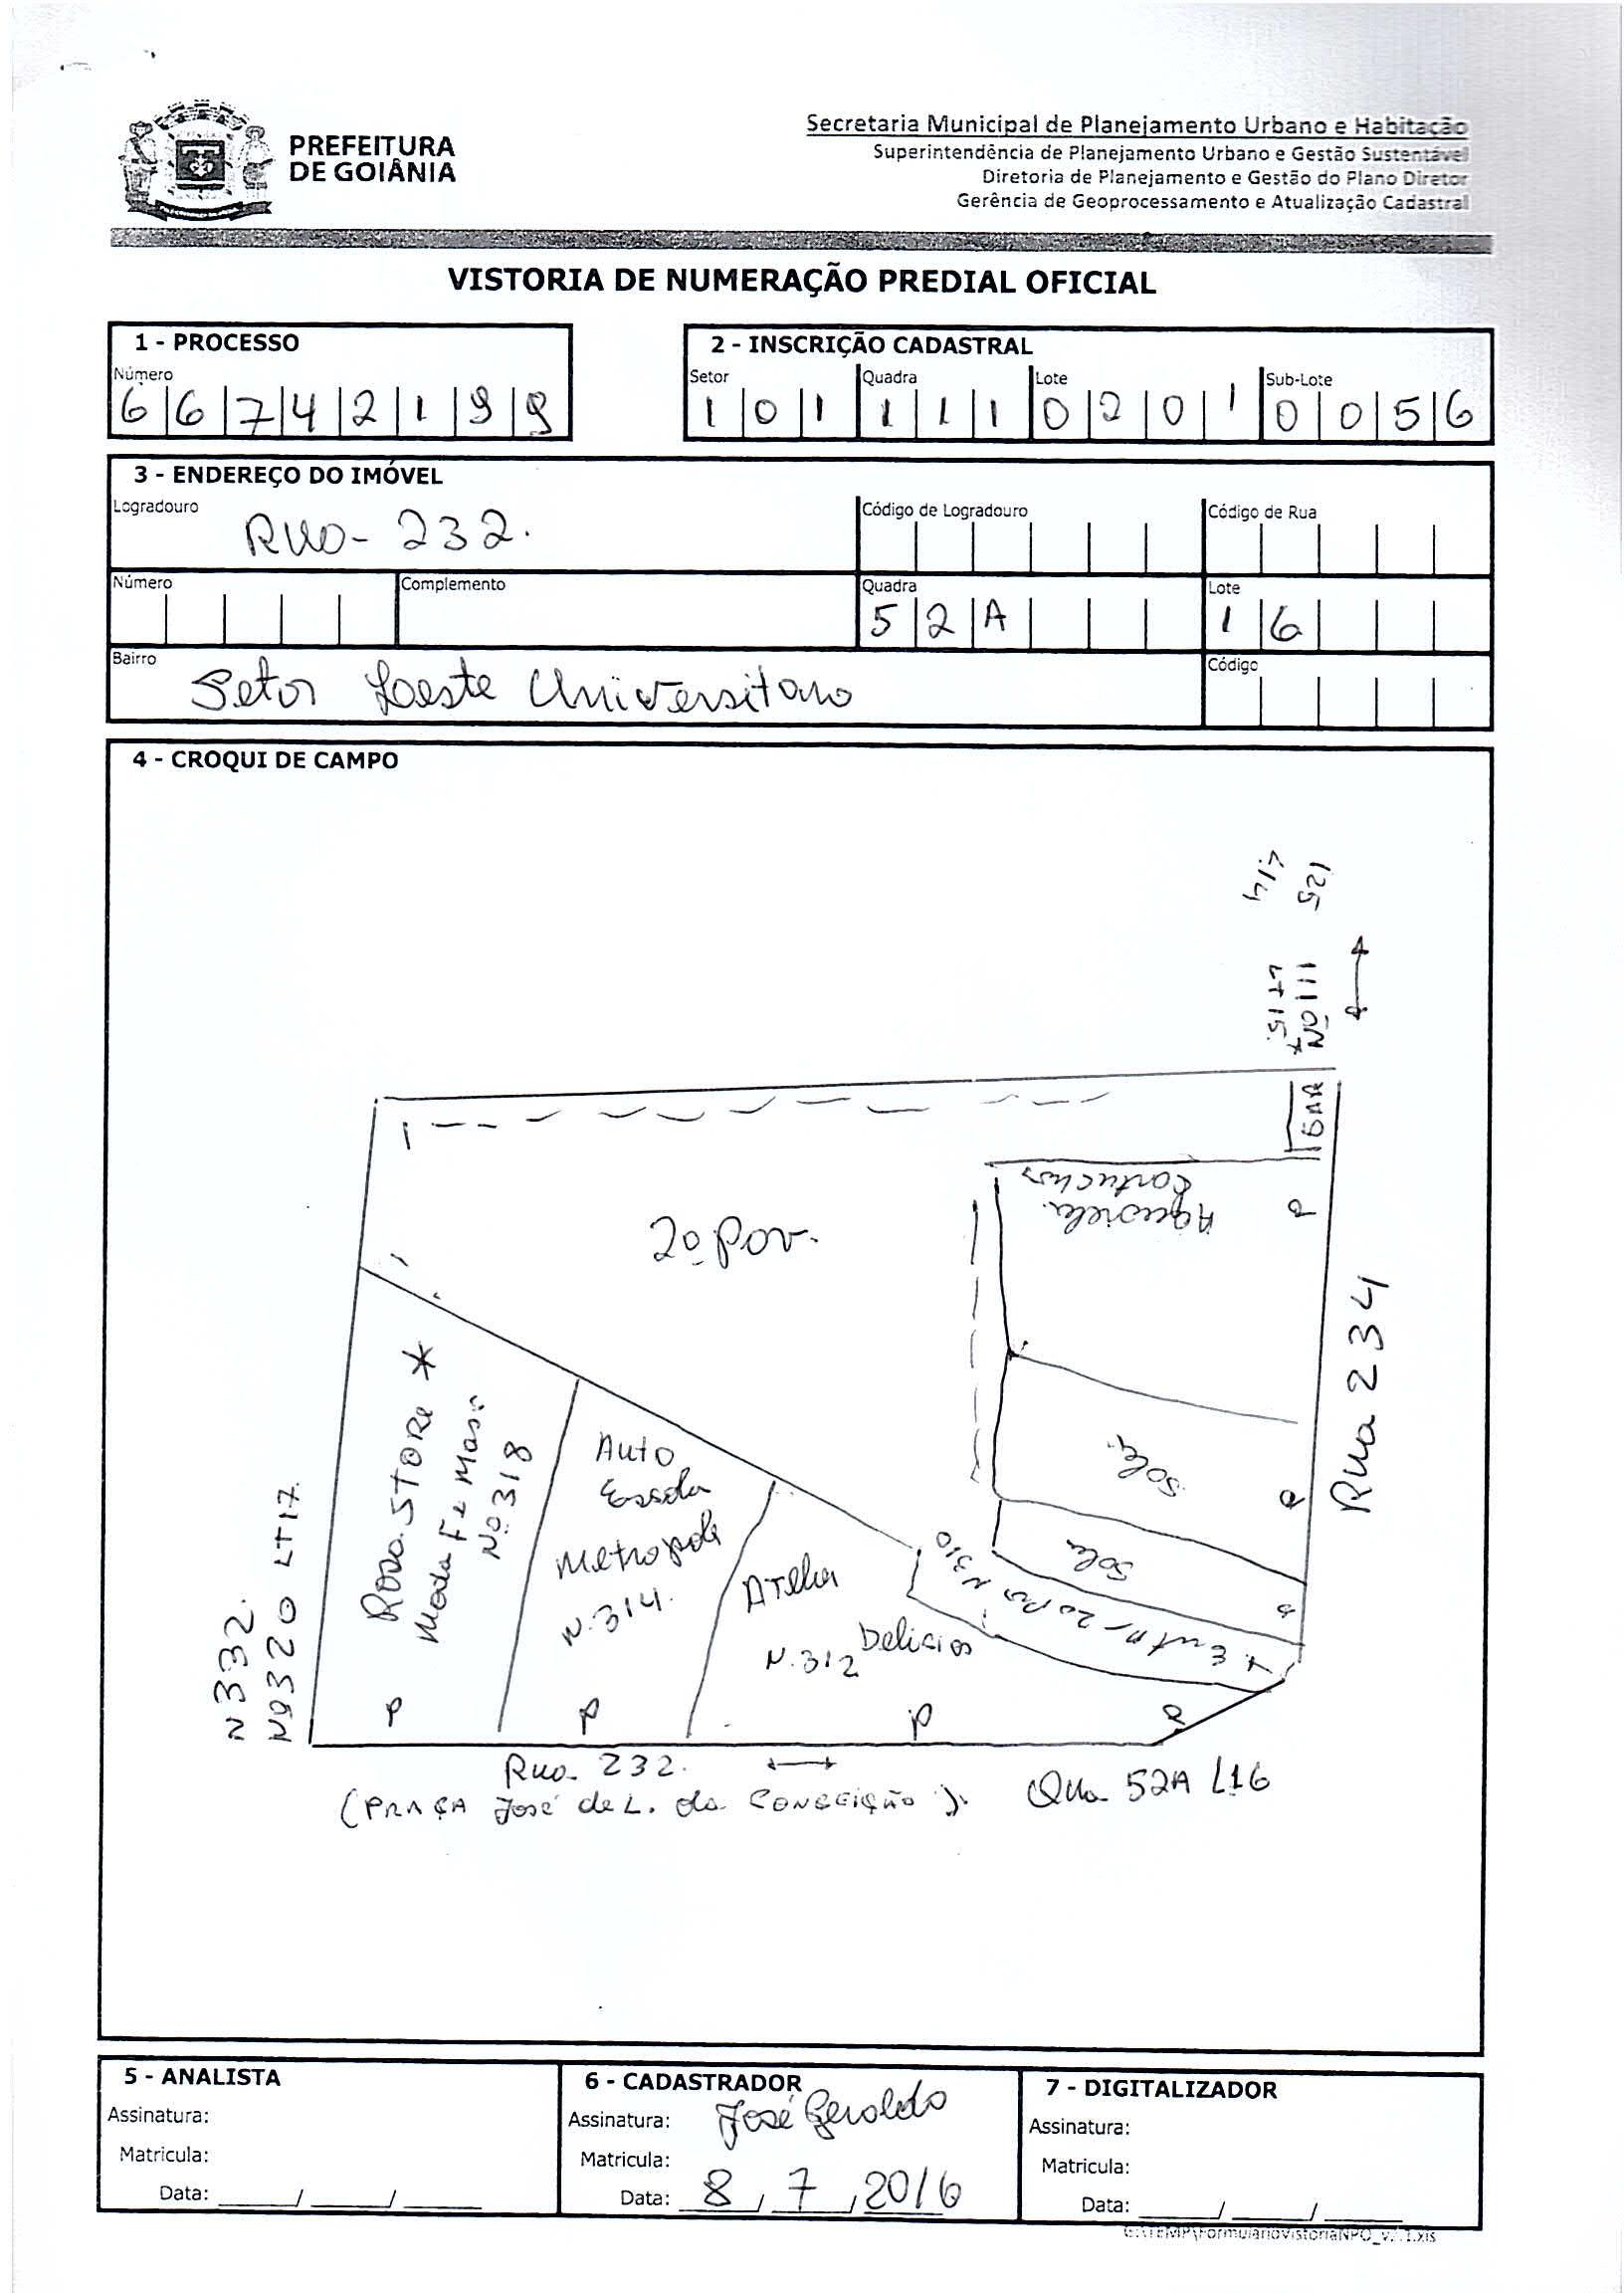 PREFEITURA
DE GOIÂNIA
Secretaria Municipal de Planejamento Urbano e Habitação
Superintendência de Planejamento Urbano e Gestão Sustentável
Diretoria de Planejamento e Gestão do Plano Diretor
Gerência de Geoprocessamento e Atualização Cadastral
VISTORIA DE NUMERAÇÃO PREDIAL OFICIAL
1 - PROCESSO
Número
6 6 7 4 2 1 9 9
2 - INSCRIÇÃO CADASTRAL
Setor Quadra Lote Sub-Lote
1 0 1 1 1 1 0 2 0 1 0 0 5 6
3 - ENDEREÇO DO IMÓVEL
Logradouro Rua - 232.
Código de Logradouro
Código de Rua
Número
Complemento
Quadra
5 2 A
Lote
1 6
Bairro Setor Leste Universitario
Código
4 - CROQUI DE CAMPO
125
Nº 111
LT 15
2º Pav.
Cartuchos
Rua 234
Rosa STORE *
Moda Fe Mas
Nº 318
Auto
Escola
Metropole
N. 314.
Delicias
N. 312
N 310
N 332.
Nº 320 LT 17.
Rua 232.
(PRAÇA José de L. da CONCEIÇÃO).
Qua 52A L16
5 - ANALISTA
Assinatura:
Matricula:
Data: / /
6 - CADASTRADOR
Assinatura: José Geraldo
Matricula:
Data: 8 / 7 / 2016
7 - DIGITALIZADOR
Assinatura:
Matricula:
Data: / /